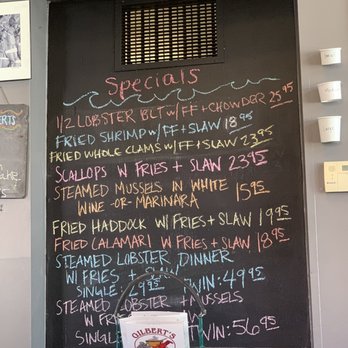 Specials
1/2 LOBSTER BLT W/ FF + CHOWDER 25.95
FRIED SHRIMP W/ FF + SLAW 18.95
FRIED WHOLE CLAMS W/ FF + SLAW 23.95
SCALLOPS W FRIES + SLAW 23.95
STEAMED MUSSELS IN WHITE
WINE -OR- MARINARA 15.95
FRIED HADDOCK W/ FRIES + SLAW 19.95
FRIED CALAMARI W FRIES + SLAW 18.95
STEAMED LOBSTER DINNER
W/ FRIES + SLAW
SINGLE: 9.95 TWIN: 49.95
STEAMED LOBSTER + MUSSELS
W FRIES
SINGLE TWIN: 56.95
GILBERT'S